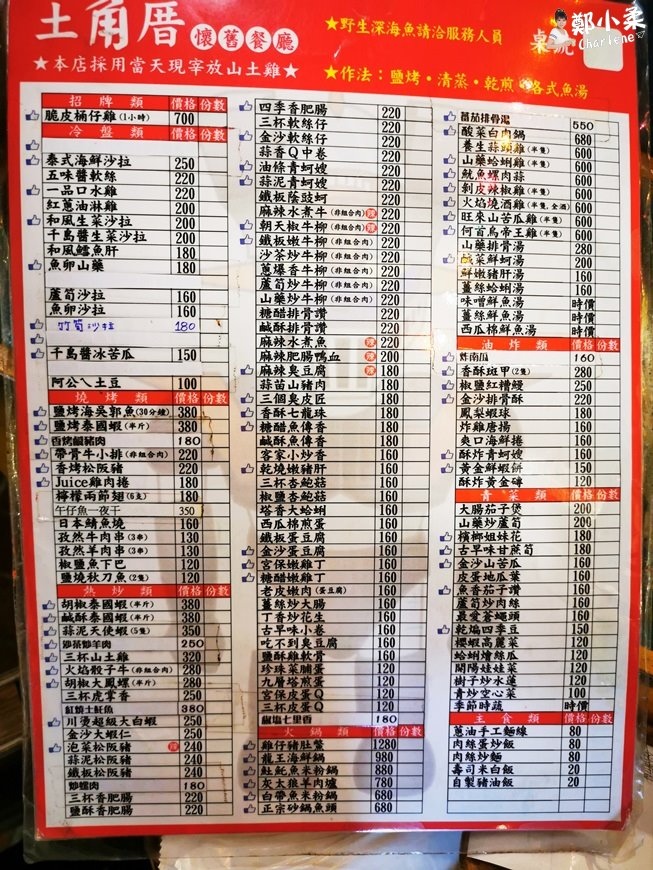 土角厝 懷舊餐廳
★本店採用當天現宰放山土雞★
★野生深海魚請洽服務人員
★作法：鹽烤・清蒸・乾煎・各式魚湯
桌號
鄭小柔
Charlene
招牌類 價格 份數
脆皮桶仔雞(1小時) 700
冷盤類 價格 份數
泰式海鮮沙拉 250
五味醬軟絲 220
一品口水雞 220
紅蔥油淋雞 200
和風生菜沙拉 200
千島醬生菜沙拉 200
和風鱈魚肝 180
魚卵山藥 180
蘆筍沙拉 160
魚卵沙拉 160
竹筍沙拉 180
千島醬冰苦瓜 150
阿公ㄟ土豆 100
燒烤類 價格 份數
鹽烤海吳郭魚(30分鐘) 380
鹽烤泰國蝦(半斤) 380
香烤鹹豬肉 180
帶骨牛小排(非組合肉) 220
香烤松阪豬 220
Juice雞肉捲 180
檸檬兩節翅(6支) 180
午仔魚一夜干 350
日本鯖魚燒 160
孜然牛肉串(3串) 130
孜然羊肉串(3串) 130
椒鹽魚下巴 120
鹽燒秋刀魚(2隻) 120
熱炒類 價格 份數
胡椒泰國蝦(半斤) 380
鹹酥泰國蝦(半斤) 380
蒜泥天使蝦(5隻) 350
沙茶炒羊肉 250
三杯山土雞 320
火焰骰子牛(非組合肉) 280
胡椒大鳳螺(半斤) 280
三杯虎掌香 250
紅燒土魠魚 380
川燙超級大白蝦 250
金沙大蝦仁 250
泡菜松阪豬 辣 240
蒜泥松阪豬 240
鐵板松阪豬 240
炒螺肉 180
三杯香肥腸 220
鹽酥香肥腸 220
四季香肥腸 220
三杯軟絲仔 220
金沙軟絲仔 220
蒜香Q中卷 220
油條青蚵嫂 220
蒜泥青蚵嫂 220
鐵板蔭豉蚵 220
麻辣水煮牛(非組合肉) 辣 220
朝天椒牛柳(非組合肉) 辣 220
鐵板嫩牛柳(非組合肉) 220
沙茶炒牛柳(非組合肉) 220
蔥爆香牛柳(非組合肉) 220
蘆筍炒牛柳(非組合肉) 220
山藥炒牛柳(非組合肉) 220
糖醋排骨讚 220
鹹酥排骨讚 220
麻辣水煮魚 辣 220
麻辣肥腸鴨血 辣 200
麻辣臭豆腐 辣 180
蒜苗山豬肉 180
三個臭皮匠 180
香酥七龍珠 180
糖醋魚傳香 180
鹹酥魚傳香 180
客家小炒香 180
乾燒嫩豬肝 180
三杯杏鮑菇 160
椒鹽杏鮑菇 160
塔香大蛤蜊 160
西瓜綿煎蛋 160
鐵板蛋豆腐 160
金沙蛋豆腐 160
宮保嫩雞丁 160
糖醋嫩雞丁 160
老皮嫩肉(蛋豆腐) 160
薑絲炒大腸 160
丁香炒花生 160
古早味小卷 160
吃不到臭豆腐 160
鹽酥雞軟骨 160
珍珠菜脯蛋 120
九層塔煎蛋 120
宮保皮蛋Q 120
三杯皮蛋Q 120
椒塩七里香 180
火鍋類 價格 份數
雞仔豬肚鱉 1280
龍王海鮮鍋 980
魠魠魚米粉鍋 880
灰太狼羊肉爐 780
白帶魚米粉鍋 680
正宗砂鍋魚頭 680
番茄排骨湯 550
酸菜白肉鍋 680
養生蒜頭雞(半隻) 600
山藥蛤蜊雞(半隻) 600
魷魚螺肉蒜 600
剝皮辣椒雞(半隻) 600
火焰燒酒雞(半隻,全酒) 600
旺來山苦瓜雞(半隻) 600
何首烏帝王雞(半隻) 600
山藥排骨湯 280
鹹菜鮮蚵湯 200
鮮嫩豬肝湯 160
薑絲蛤蜊湯 160
味噌鮮魚湯 時價
薑絲鮮魚湯 時價
西瓜棉鮮魚湯 時價
油炸類 價格 份數
炸南瓜 160
香酥斑甲(2隻) 280
椒鹽紅糟鰻 250
金沙排骨酥 220
鳳梨蝦球 180
炸雞唐揚 160
爽口海鮮捲 160
酥炸青蚵嫂 160
黃金鮮蝦餅 150
酥炸黃金磚 120
青菜類 價格 份數
大腸茄子煲 200
山藥炒蘆筍 200
檳榔姐妹花 180
古早味甘蔗筍 180
金沙山苦瓜 160
皮蛋地瓜葉 160
魚香茄子讚 160
蘆筍炒肉絲 160
最愛蒼蠅頭 160
乾煸四季豆 150
櫻蝦高麗菜 120
蛤蜊燴絲瓜 120
開陽娃娃菜 120
樹子炒水蓮 120
青炒空心菜 100
季節時蔬 時價
主食類 價格 份數
蔥油手工麵線 80
肉絲蛋炒飯 80
肉絲炒麵 80
壽司米白飯 20
自製豬油飯 20